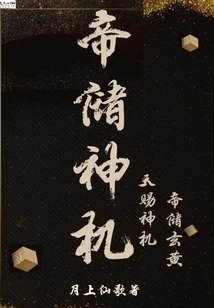 帝储神机
帝储玄黄
天赐神机
月上仙歌著